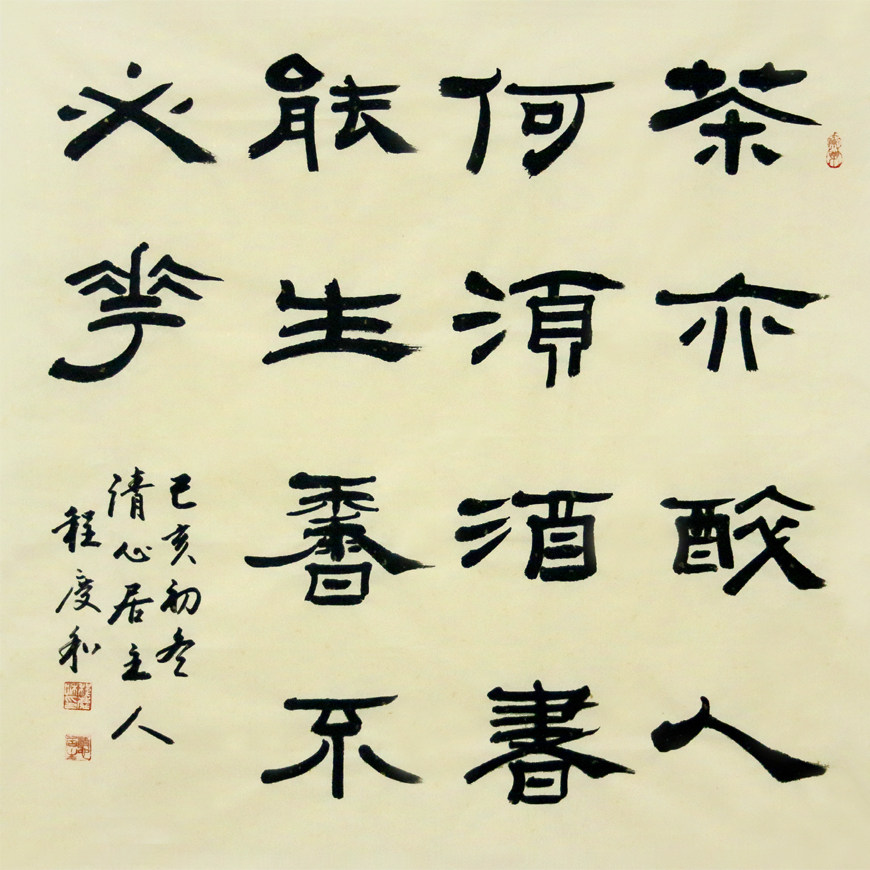 茶亦醉人
何須酒書
能生香不
必華
己亥初冬
清心居主人
程度和